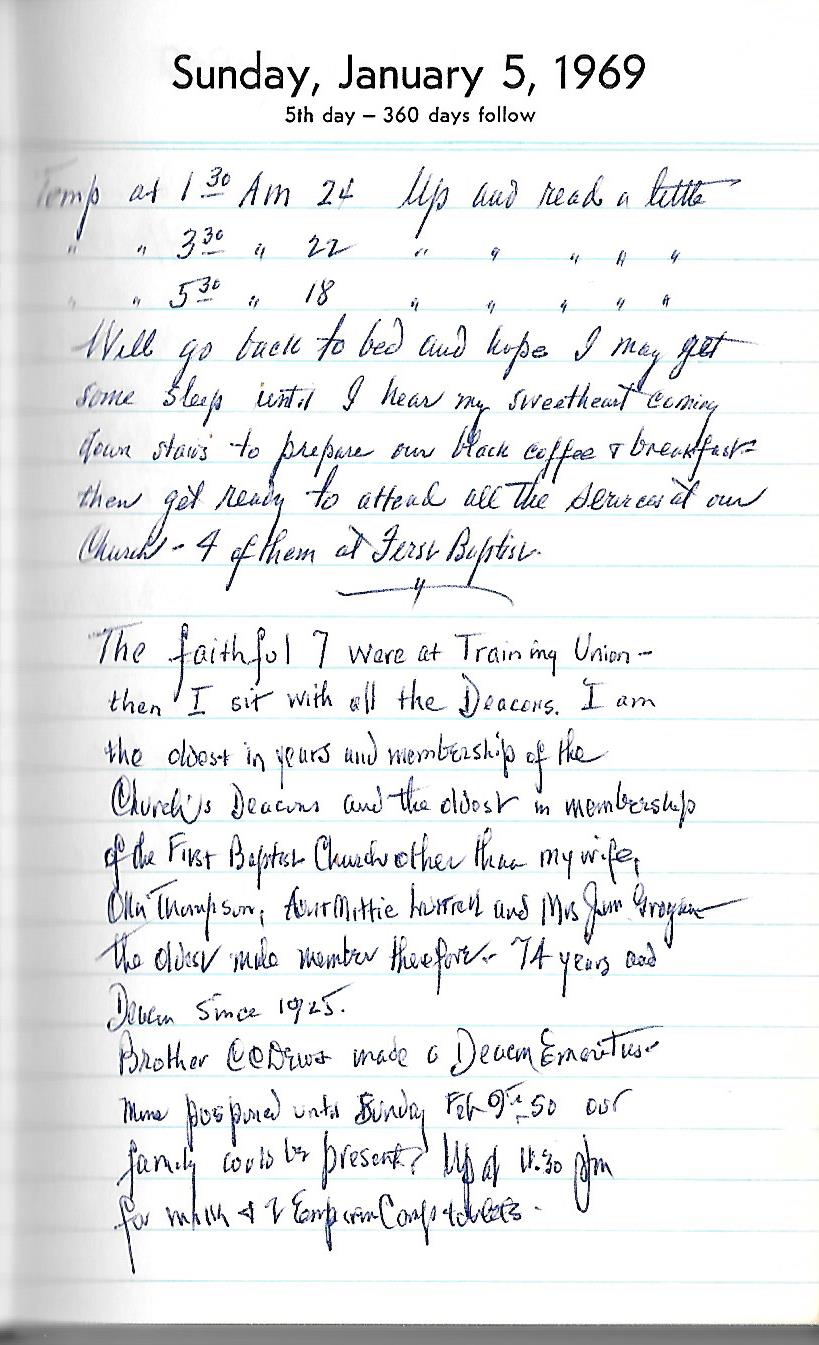 Sunday, January 5, 1969
5th day – 360 days follow
Temp at 1 30 Am 24 Up and read a little
" " 3 30 " 22 " " " " "
" " 5 30 " 18 " " " " "
Will go back to bed and hope I may get
some sleep until I hear my sweetheart coming
down stairs to prepare our black coffee & breakfast-
then get ready to attend all the services at our
Church - 4 of them at First Baptist.
"
The faithful 7 were at Training Union -
then I sit with all the Deacons. I am
the oldest in years and membership of the
Church's Deacons and the oldest in membership
of the First Baptist Church other than my wife,
Thompson, Aunt Mittie and Mrs Jim
the oldest male member therefore - 74 years and
Deacon since 1925.
Brother CC made a Deacon Emeritus -
Mine posponed until Sunday Feb 9th - so our
family could be present? Up at 11:30 pm
for milk & 2 Comp tablets -